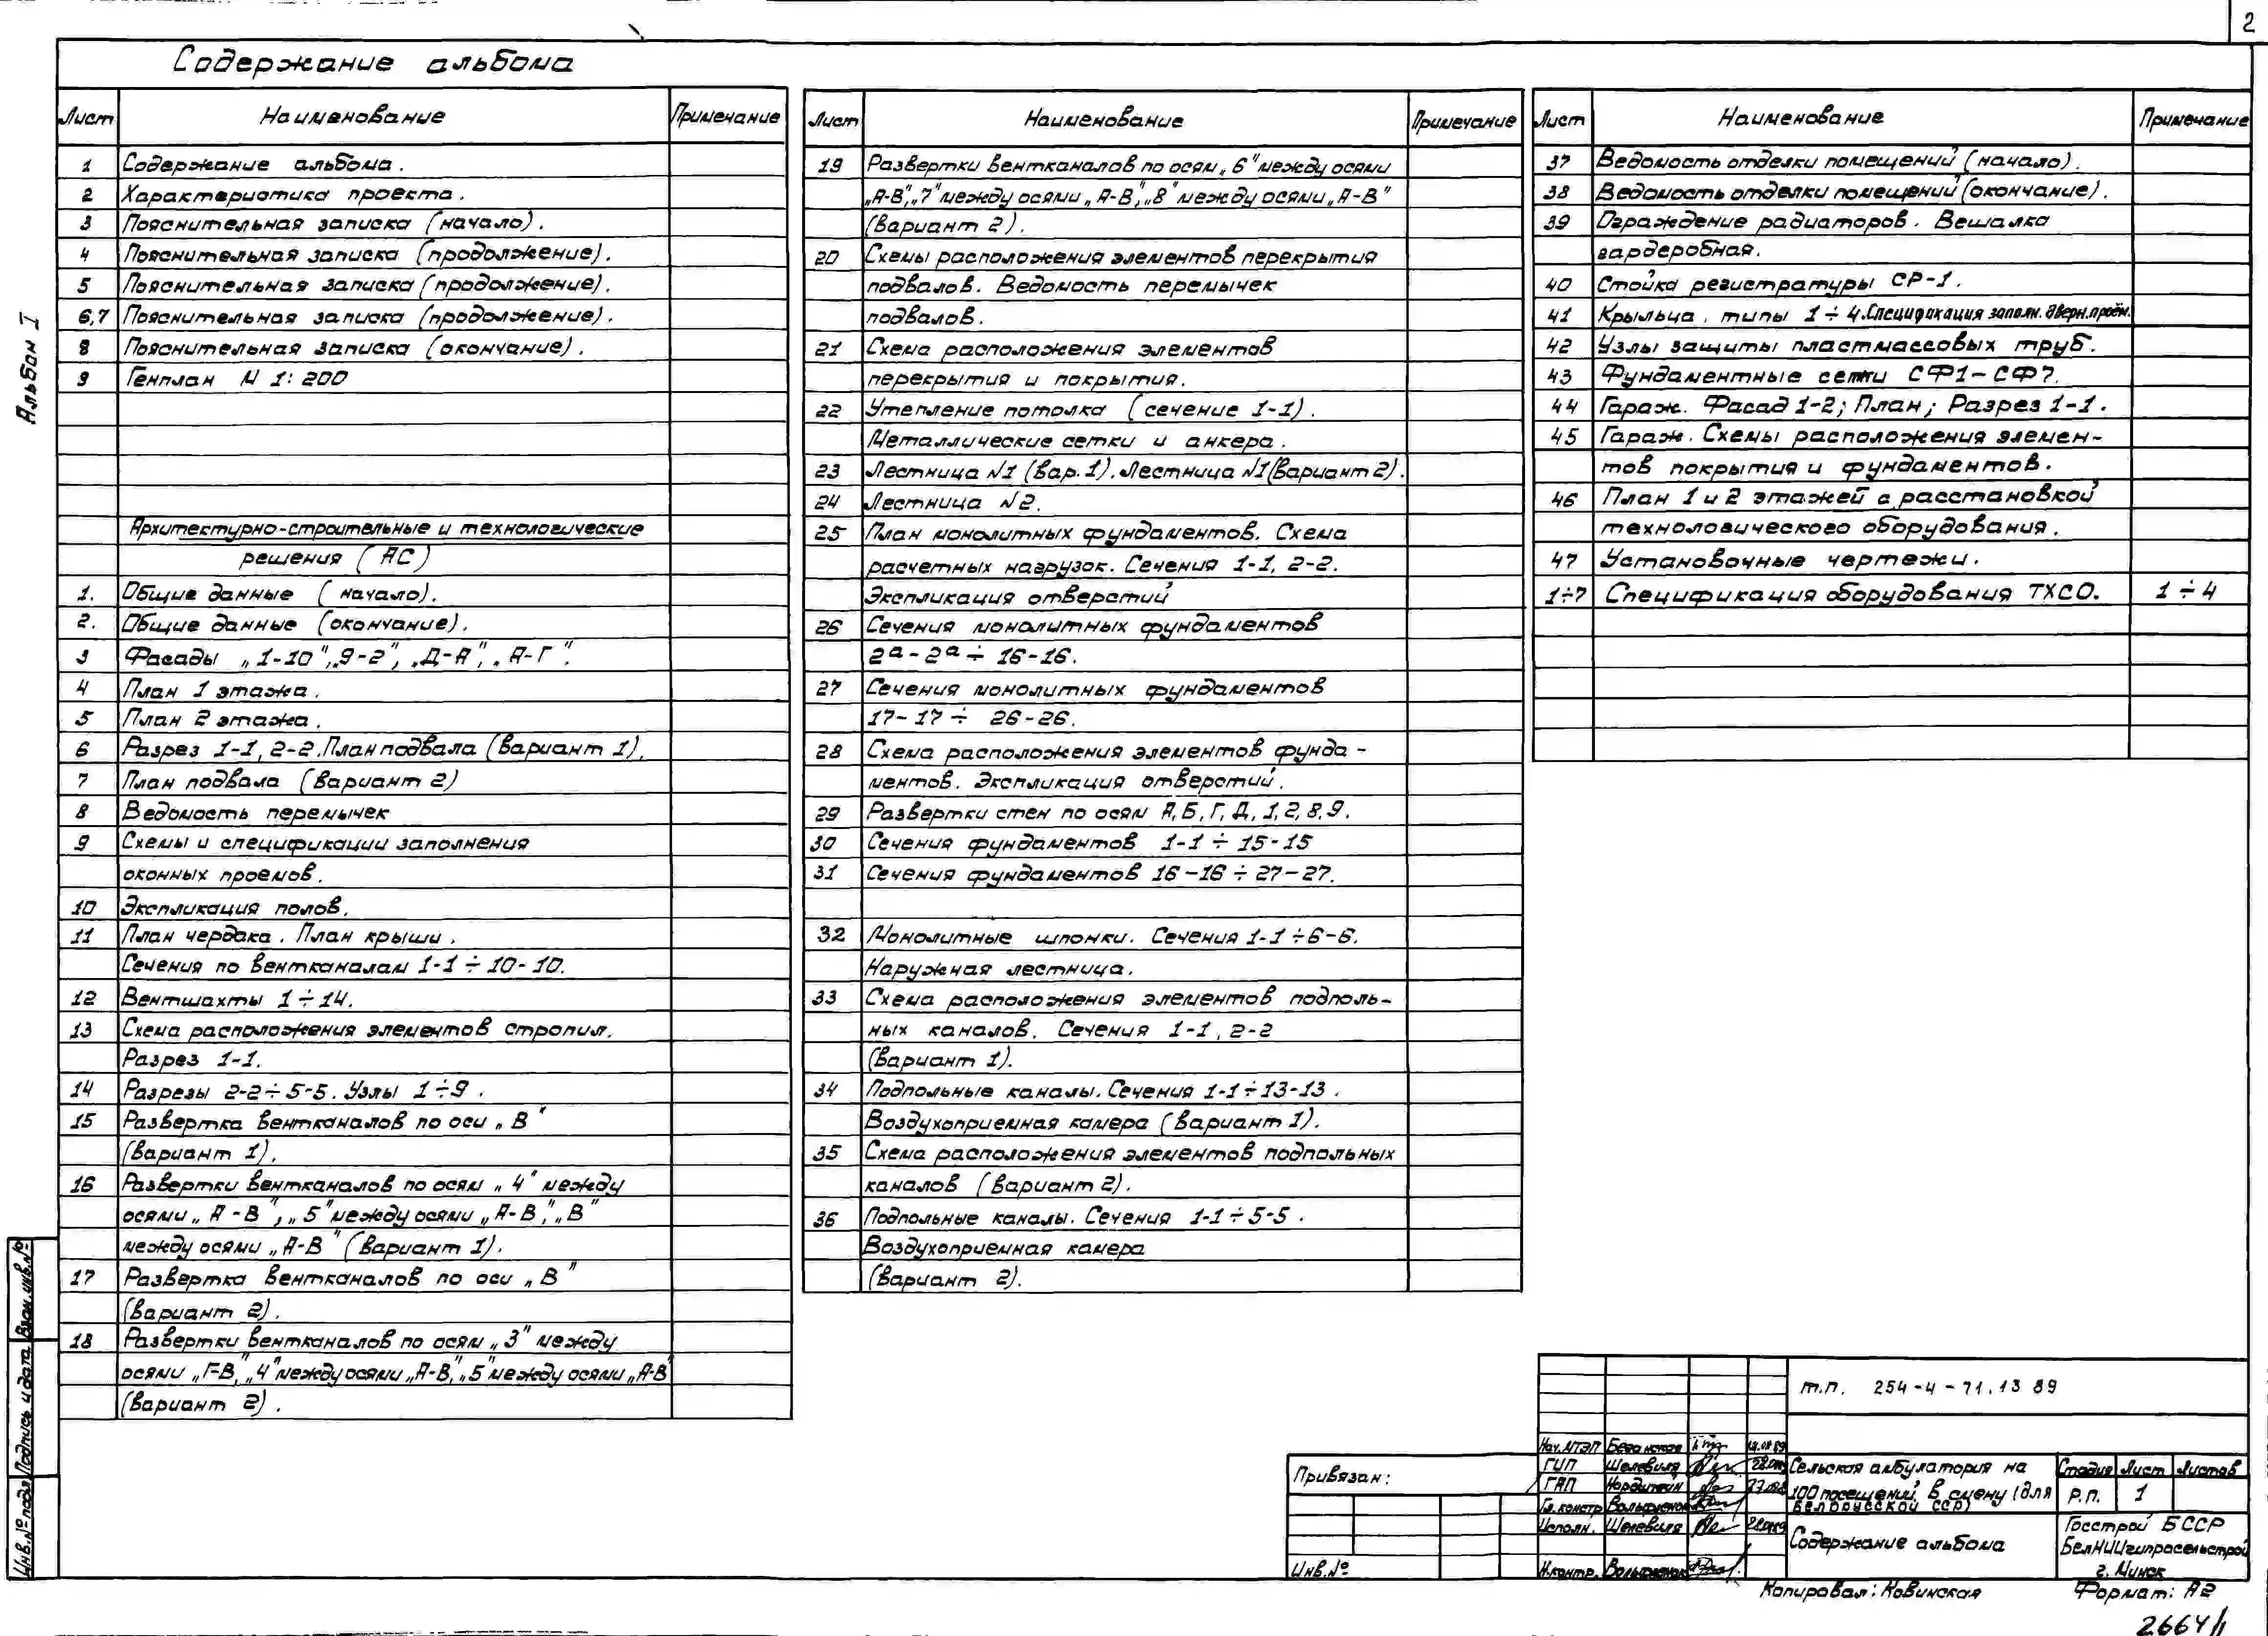 2
Содержание альбома
Альбом I
Лист Наименование Примечание
1 Содержание альбома.
2 Характеристика проекта.
3 Пояснительная записка (начало).
4 Пояснительная записка (продолжение).
5 Пояснительная записка (продолжение).
6,7 Пояснительная записка (продолжение).
8 Пояснительная записка (окончание).
9 Генплан М 1:200
Архитектурно-строительные и технологические
решения (АС)
1. Общие данные (начало).
2. Общие данные (окончание).
3 Фасады „1-10", „9-2", „Д-А", „А-Г".
4 План 1 этажа.
5 План 2 этажа.
6 Разрез 1-1, 2-2. План подвала (вариант 1).
7 План подвала (вариант 2)
8 Ведомость перемычек
9 Схемы и спецификации заполнения
оконных проемов.
10 Экспликация полов.
11 План чердака. План крыши.
Сечения по вентканалам 1-1÷10-10.
12 Вентшахты 1÷14.
13 Схема расположения элементов стропил.
Разрез 1-1.
14 Разрезы 2-2÷5-5. Узлы 1÷9.
15 Развертка вентканалов по оси „В"
(вариант 1).
16 Развертки вентканалов по осям „4" между
осями „А-В", „5" между осями „А-В", „В"
между осями „А-В" (вариант 1).
17 Развертка вентканалов по оси „В"
(вариант 2).
18 Развертки вентканалов по осям „3" между
осями „Г-В", „4" между осями „А-В", „5" между осями „А-В"
(вариант 2).
Лист Наименование Примечание
19 Развертки вентканалов по осям „6" между осями
„А-В", „7" между осями „А-В", „8" между осями „А-В"
(вариант 2).
20 Схемы расположения элементов перекрытия
подвалов. Ведомость перемычек
подвалов.
21 Схема расположения элементов
перекрытия и покрытия.
22 Утепление потолка (сечение 1-1).
Металлические сетки и анкера.
23 Лестница №1 (вар. 1). Лестница №1 (вариант 2).
24 Лестница №2.
25 План монолитных фундаментов. Схема
расчетных нагрузок. Сечения 1-1, 2-2.
Экспликация отверстий
26 Сечения монолитных фундаментов
2а-2а÷16-16.
27 Сечения монолитных фундаментов
17-17÷26-26.
28 Схема расположения элементов фунда-
ментов. Экспликация отверстий.
29 Развертки стен по осям А, Б, Г, Д, 1, 2, 8, 9.
30 Сечения фундаментов 1-1÷15-15
31 Сечения фундаментов 16-16÷27-27.
32 Монолитные шпонки. Сечения 1-1÷6-6.
Наружная лестница.
33 Схема расположения элементов подполь-
ных каналов. Сечения 1-1, 2-2
(вариант 1).
34 Подпольные каналы. Сечения 1-1÷13-13.
Воздухоприемная камера (вариант 1).
35 Схема расположения элементов подпольных
каналов (вариант 2).
36 Подпольные каналы. Сечения 1-1÷5-5.
Воздухоприемная камера
(вариант 2).
Лист Наименование Примечание
37 Ведомость отделки помещений (начало).
38 Ведомость отделки помещений (окончание).
39 Ограждение радиаторов. Вешалка
гардеробная.
40 Стойка регистратуры СР-1.
41 Крыльца, типы 1÷4. Спецификация заполн. дверн. проём.
42 Узлы защиты пластмассовых труб.
43 Фундаментные сетки СФ1-СФ7.
44 Гараж. Фасад 1-2; План; Разрез 1-1.
45 Гараж. Схемы расположения элемен-
тов покрытия и фундаментов.
46 План 1 и 2 этажей с расстановкой
технологического оборудования.
47 Установочные чертежи.
1÷7 Спецификация оборудования ТХСО. 1÷4
Взам. инв.№
Подпись и дата
Инв.№ подл
Привязан:
Инв.№
т.п. 254-4-71.13 89
Нач. МТЭП
ГИП Шелевиля
ГАП
Гл. констр
Исполн. Шелевиля
Н.контр.
Сельская амбулатория на
100 посещений в смену (для
Белорусской ССР)
Стадия Лист Листов
Р.П. 1
Содержание альбома
Госстрой БССР
БелНИИгипросельстрой
г. Минск
Копировал: Ковинская Формат: А2
2664/1